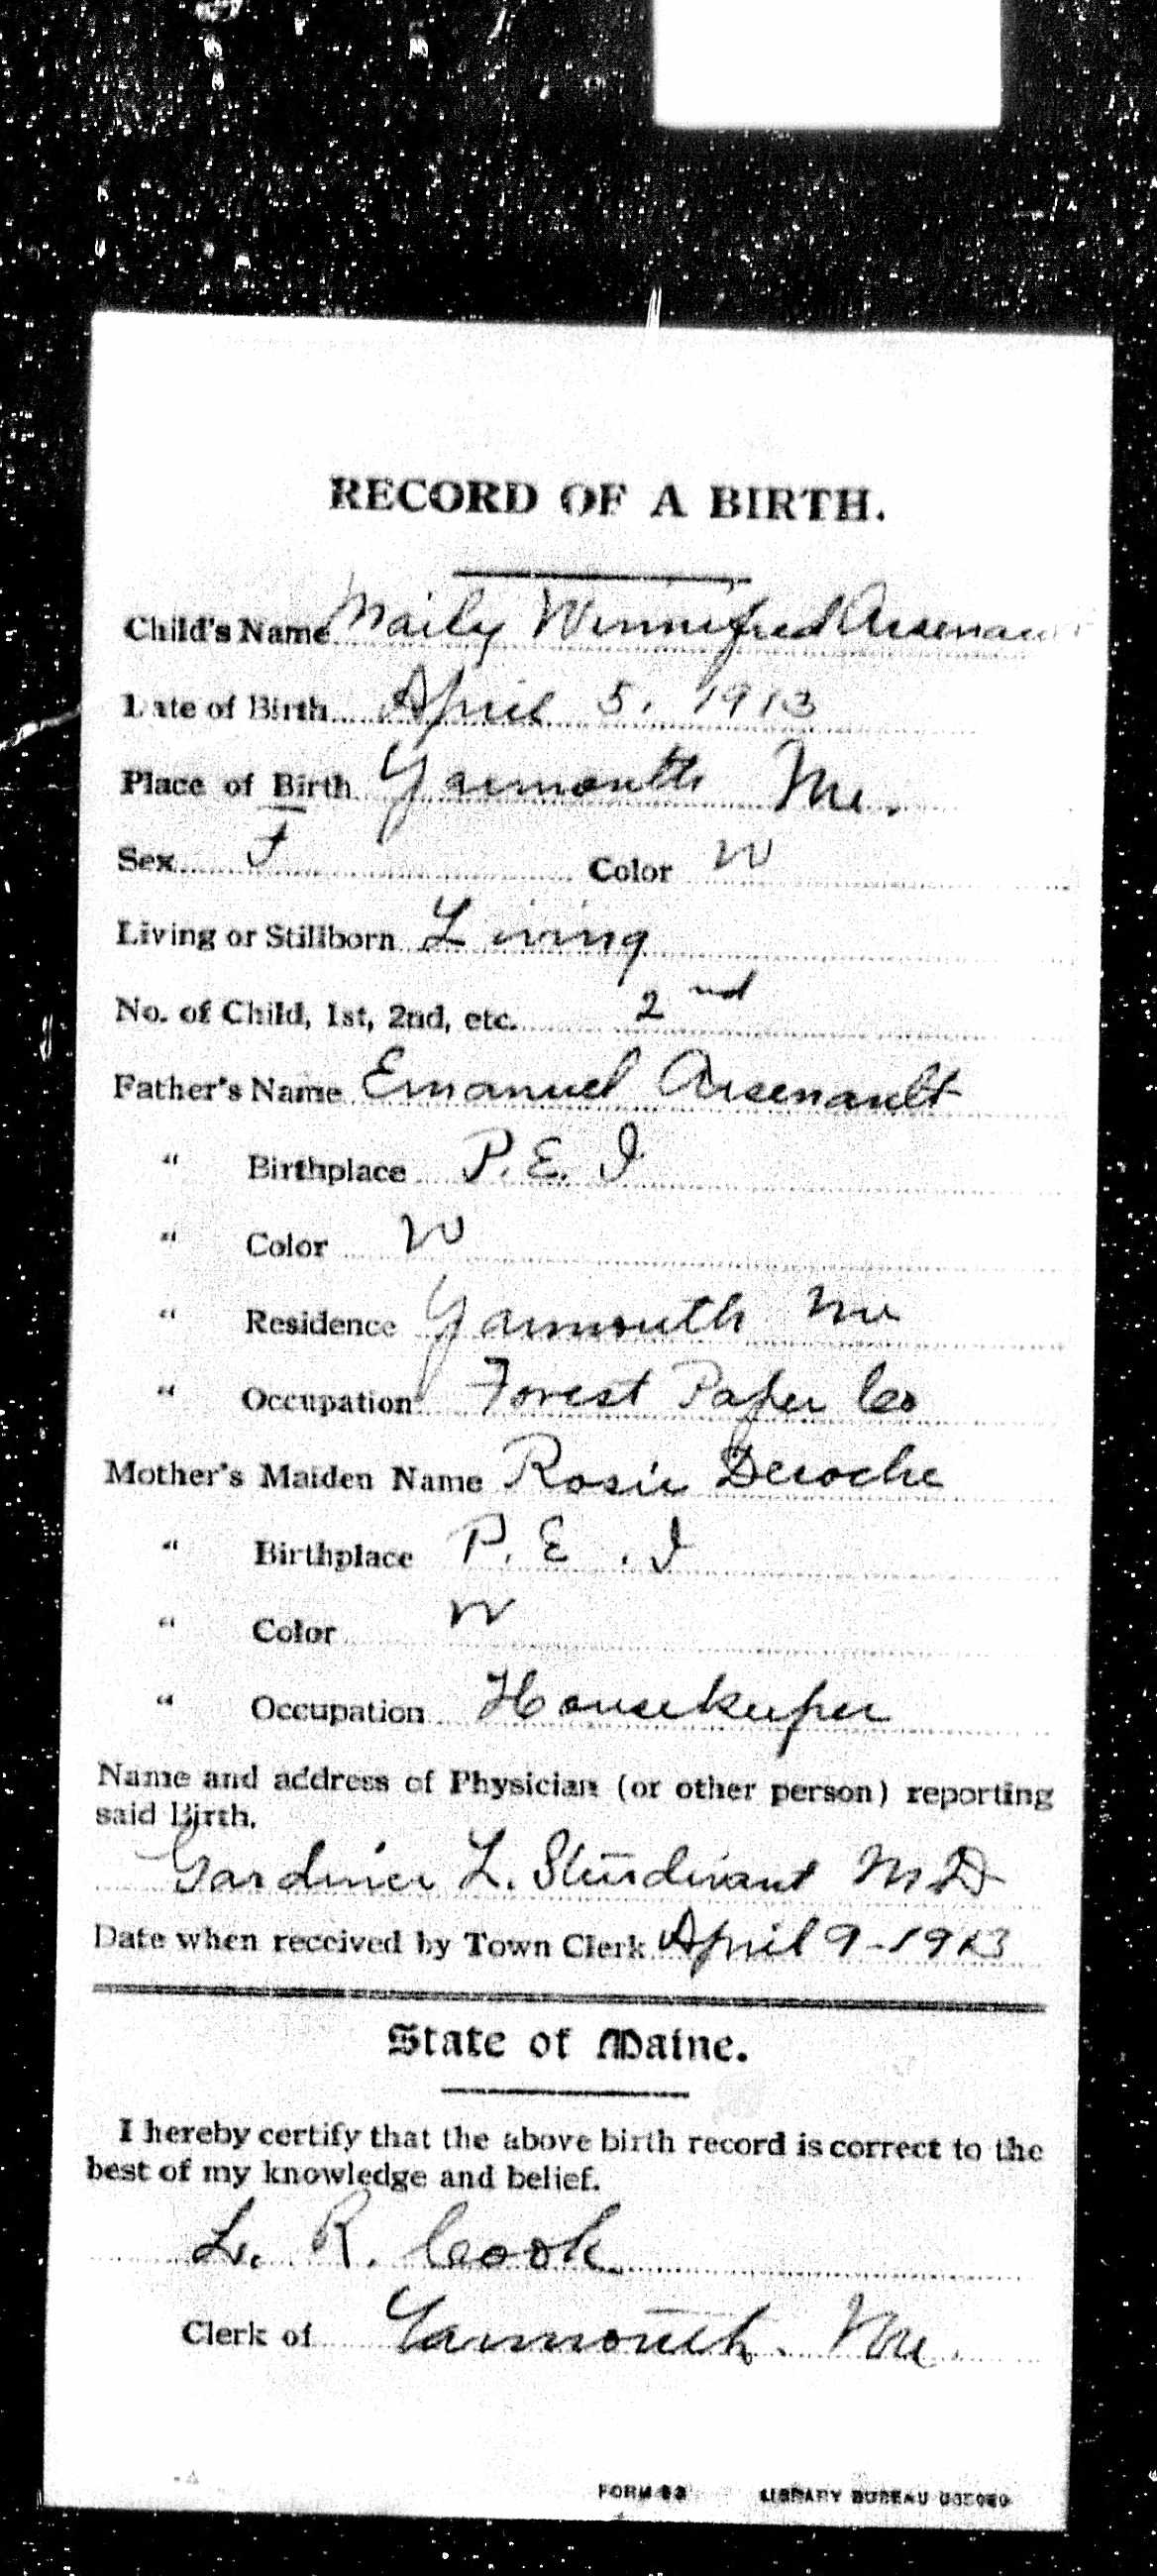 RECORD OF A BIRTH.
Child's Name Maily Winnifred Arsenau
Date of Birth April 5, 1913
Place of Birth Yarmouth Me.
Sex F Color W
Living or Stillborn Living
No. of Child, 1st, 2nd, etc. 2nd
Father's Name Emanuel Arsenault
" Birthplace P. E. I
" Color W
" Residence Yarmouth Me
" Occupation Forest Paper Co
Mother's Maiden Name Rosie Deroche
" Birthplace P. E. I
" Color W
" Occupation Housekeeper
Name and address of Physician (or other person) reporting
said Birth.
Gardiner L. Sturdivant M D
Date when received by Town Clerk April 9-1913
State of Maine.
I hereby certify that the above birth record is correct to the
best of my knowledge and belief.
L. R. Cook
Clerk of Yarmouth. Me.
FORM LIBRARY BUREAU